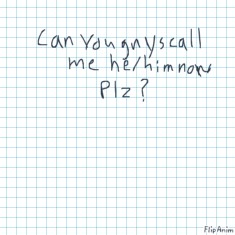 Can you guys call
me he/him now
Plz?
FlipAnim